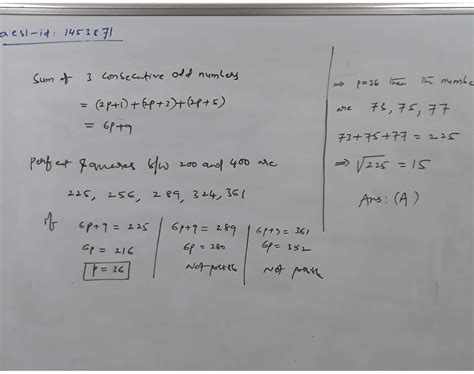 aesl-id: 1453871
Sum of 3 consecutive odd numbers
= (2p+1)+(2p+3)+(2p+5)
= 6p+9
perfect squares b/w 200 and 400 are
225, 256, 289, 324, 361
if 6p+9 = 225
6p = 216
p = 36
6p+9 = 289
6p = 280
Not possible
6p+9 = 361
6p = 352
Not possible
⇒ p=36 then the numbe
are 73, 75, 77
73+75+77 = 225
⇒ √225 = 15
Ans: (A)